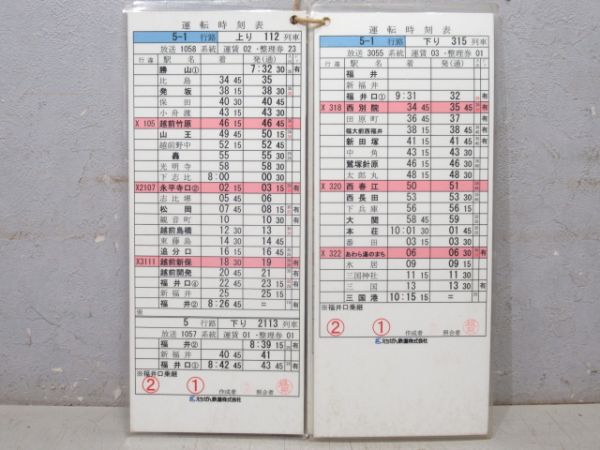 運転時刻表
5-1 行路 上り 112 列車
放送 1058 系統 運賃 02・整理券 23
行違 駅名 着 発(通)
勝山① 7:32 30 有
比島 34 45 35
発坂 38 15 38 30 有
保田 40 30 40 45
小舟渡 43 15 43 30
X 105 越前竹原 46 15 46 45
山王 49 45 50 15
越前野中 52 15 52 45
轟 55 55 30
光明寺 58 58 30
下志比 8:00 00 30
X2107 永平寺口② 02 15 03 15 有
志比堺 05 45 06
松岡 07 45 08 15 有
観音町 10 10 30 有
越前島橋 12 30 13
東藤島 14 30 14 45
追分口 16 15 16 45
X3111 越前新保 18 30 19 有
越前開発 20 45 21 有
福井口④ 22 45 23 15 有
新福井 25 25 15
福井② 8:26 45 =
5 行路 下り 2113 列車
放送 1057 系統 運賃 01・整理券 01
福井② 8:39 15 有
新福井 40 40 41
福井口① 8:42 45 43 15 有
※福井口乗継
② ① 作成者 照合者
えちぜん鉄道株式会社
運転時刻表
5-1 行路 下り 315 列車
放送 3055 系統 運賃 03・整理券 01
行違 駅名 着 発(通)
福井
新福井
福井口① 9:31 32 有
X 318 西別院 34 45 35 45 有
田原町 36 45 37 有
福大前西福井 38 15 38 45 有
新田塚 41 15 41 45 有
中角 43 15 43 30
鷲塚針原 46 15 46 30
太郎丸 48 15 48 30
X 320 西春江 50 51
西長田 53 53 30
下兵庫 56 56 15
大関 58 45 59
本荘 10:01 30 01 45
番田 03 15 03 30
X 322 あわら湯のまち 06 06 30 有
水居 09 09 15
三国神社 11 15 11 30
三国 13 13 30 有
三国港 10:15 15 =
※福井口乗継
② ① 作成者 照合者
えちぜん鉄道株式会社